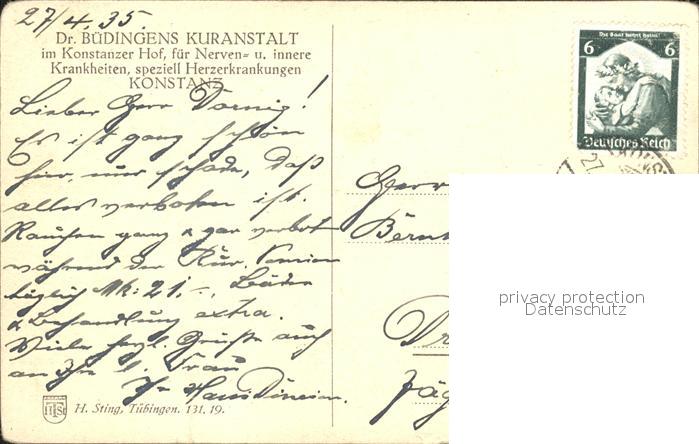 27/4. 35.
Dr. BÜDINGENS KURANSTALT
im Konstanzer Hof, für Nerven= u. innere
Krankheiten, speziell Herzerkrankungen
KONSTANZ
Lieber Herr Dornig!
Es ist ganz schön
hier, nur schade, daß
alles verboten ist.
Rauchen ganz & gar verbot
während der Kur. Pension
täglich Mk: 21.–, Bäder
& Behandlung extra.
Viele herzl. Grüße auch
an Ihre l. Frau
Ihr Hans
H. Sting, Tübingen. 131. 19.
Die Saar kehrt heim!
6 6
Deutsches Reich
Herr
privacy protection
Datenschutz